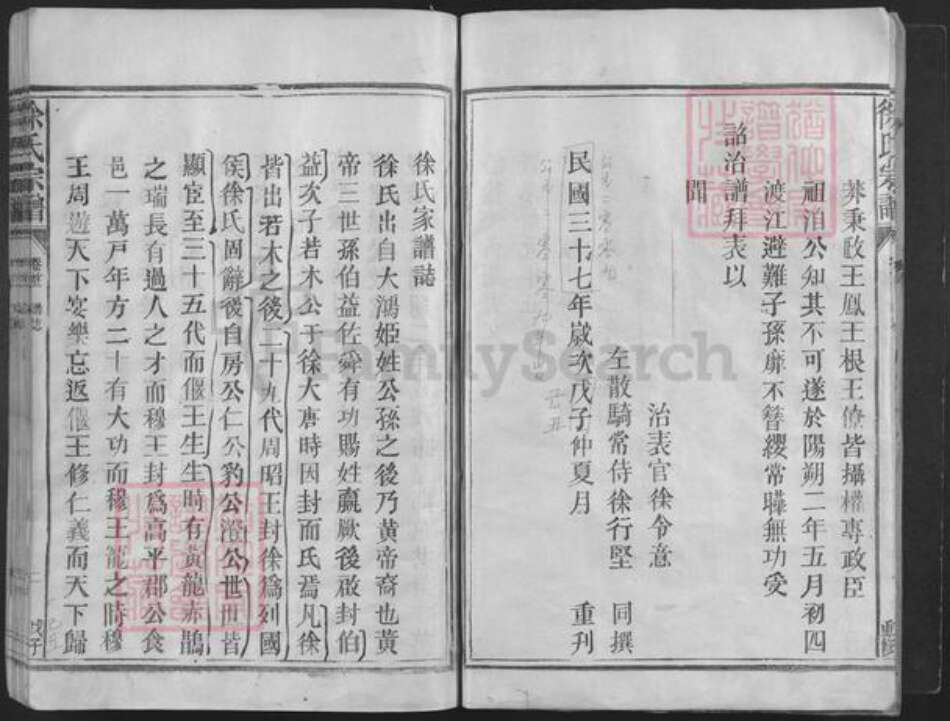 莽秉政王鳳王根王僚皆攝權專政臣
祖洎公知其不可遂於陽朔二年五月初四
渡江避難子孫靡不簪纓常曄無功受
詔治譜拜表以
聞
治表官徐令意
左散騎常侍徐行堅 同撰
民國三十七年歲次戊子仲夏月 重刊
徐氏宗譜
徐氏家譜誌
徐氏出自大鴻姬姓公孫之後乃黃帝裔也黃
帝三世孫伯益佐舜有功賜姓嬴厥後啟封伯
益次子若木公于徐大唐時因封而氏焉凡徐
皆出若木之後二十九代周昭王封徐爲列國
侯徐氏固辭後自房公仁公豹公澄公世世皆
顯宦至三十五代而偃王生生時有黃龍赤鵲
之瑞長有過人之才而穆王封爲高平郡公食
邑一萬戶年方二十有大功而穆王寵之時穆
王周遊天下宴樂忘返偃王修仁義而天下歸
徐氏宗譜
戊子
FamilySearch